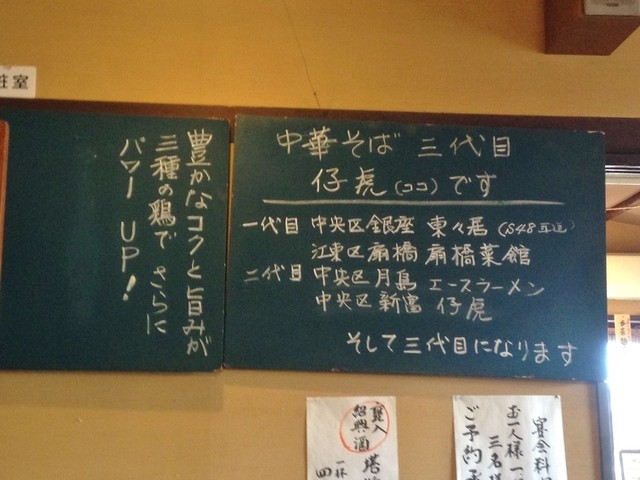 粧室
豊かなコクと旨みが
三種の鶏で さらに
パワー UP!
中華そば 三代目
仔虎(ココ)です
一代目 中央区銀座 東々居 (S48
江東区扇橋 扇橋菜館
二代目 中央区月島 エースラーメン
中央区新富 仔虎
そして三代目になります
甕入
紹興酒
一杯
宴会料
お一人様 一
三名様
ご予約